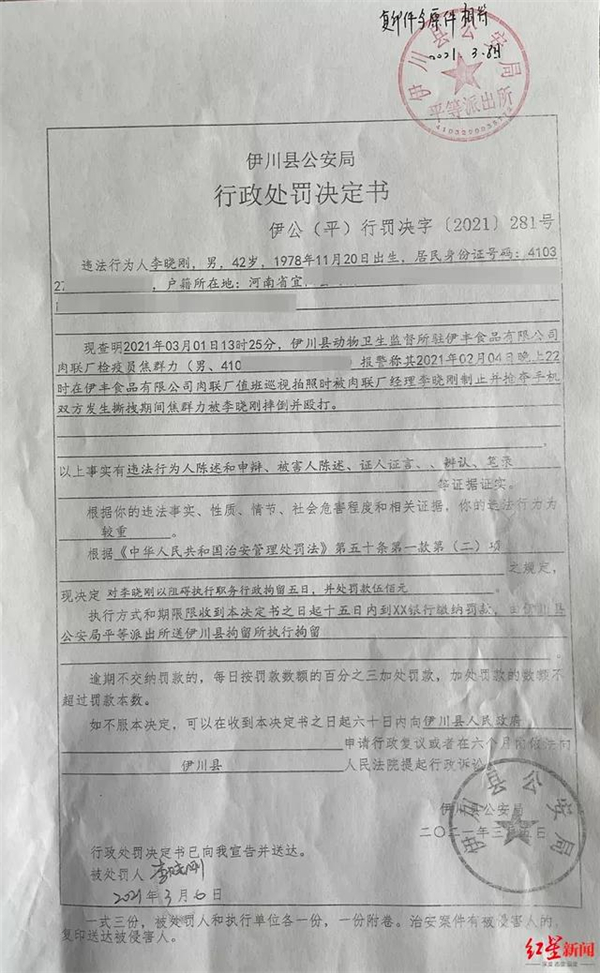 复印件与原件相符
2021.3.8
伊川县公安局
平等派出所
伊川县公安局
行政处罚决定书
伊公（平）行罚决字〔2021〕281号
违法行为人李晓刚，男，42岁，1978年11月20日出生，居民身份证号码：4103
27 ，户籍所在地：河南省宜
现查明2021年03月01日13时25分，伊川县动物卫生监督所驻伊丰食品有限公司
肉联厂检疫员焦群力（男、410 报警称其2021年02月04日晚上22
时在伊丰食品有限公司肉联厂值班巡视拍照时被肉联厂经理李晓刚制止并抢夺手机
双方发生撕拽期间焦群力被李晓刚摔倒并殴打。
以上事实有违法行为人陈述和申辩、被害人陈述、证人证言、、辨认、笔录
等证据证实。
根据你的违法事实、性质、情节、社会危害程度和相关证据，你的违法行为为
较重 。
根据《中华人民共和国治安管理处罚法》第五十条第一款第（二）项
之规定，
现决定 对李晓刚以阻碍执行职务行政拘留五日，并处罚款伍佰元
执行方式和期限限收到本决定书之日起十五日内到XX银行缴纳罚款，由伊川县
公安局平等派出所送伊川县拘留所执行拘留
逾期不交纳罚款的，每日按罚款数额的百分之三加处罚款，加处罚款的数额不
超过罚款本数。
如不服本决定，可以在收到本决定书之日起六十日内向伊川县人民政府
申请行政复议或者在六个月内依法向
伊川县 人民法院提起行政诉讼。
伊川县公安局
二〇二一年三月五日
伊川县公安局
行政处罚决定书已向我宣告并送达。
被处罚人 李晓刚
2021年3月6日
一式三份，被处罚人和执行单位各一份，一份附卷。治安案件有被侵害人的，
复印送达被侵害人。
红星新闻